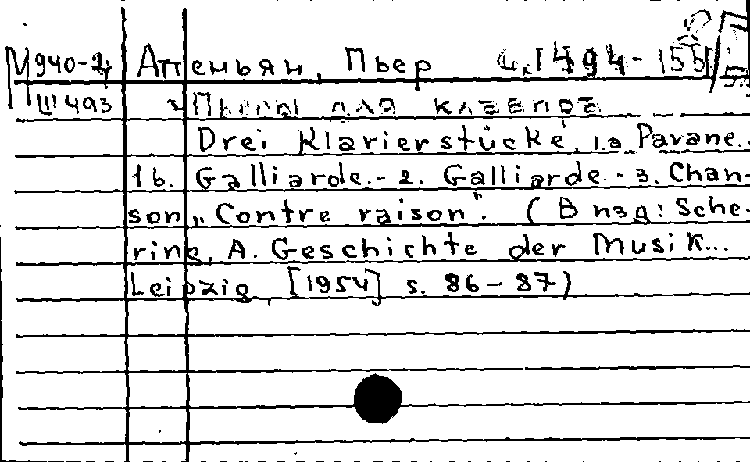 М940-2, Аттеньян, Пьер
Ш493 Пьесы для клавира
Drei Klavierstücke. 1a Pavane.
1b. Galliarde.- 2. Galliarde.- 3. Chan-
son „Contre raison". (В изд: Sche-
ring, A. Geschichte der Musik...
Leipzig, [1954] s. 86-87)